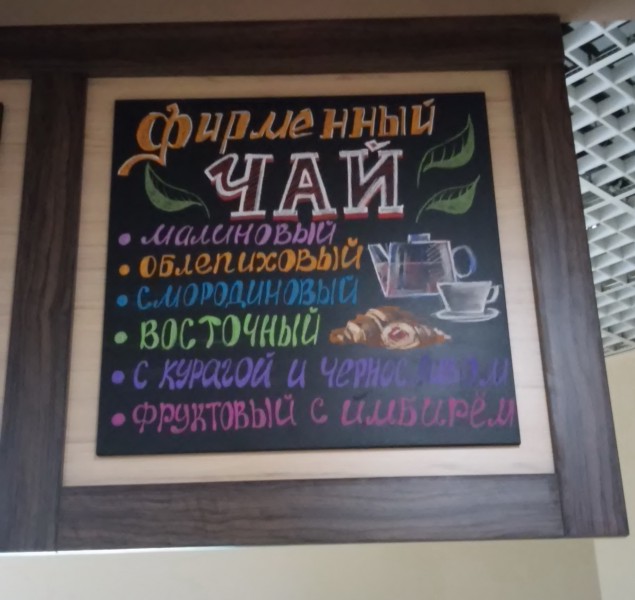 Фирменный
ЧАЙ
• малиновый
• облепиховый
• смородиновый
• восточный
• с курагой и черносливом
• фруктовый с имбирём